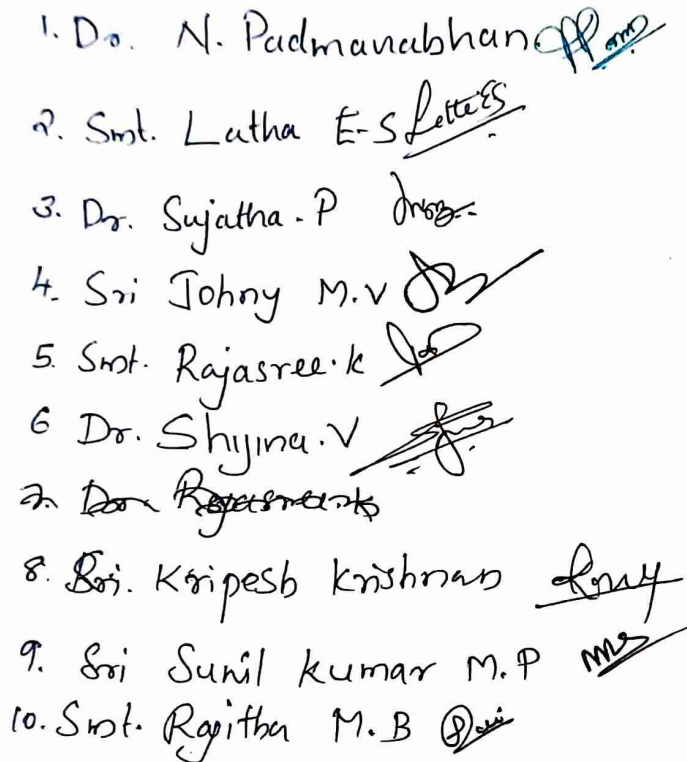 1. Dr. N. Padmanabhan
2. Smt. Latha E-S Latha ES
3. Dr. Sujatha. P
4. Sri Johny M.V
5. Smt. Rajasree. K
6 Dr. Shyjina. V
7. Rajasree. K
8. Sri. Kripesh Krishnan
9. Sri Sunil Kumar M.P
10. Smt. Rajitha M.B